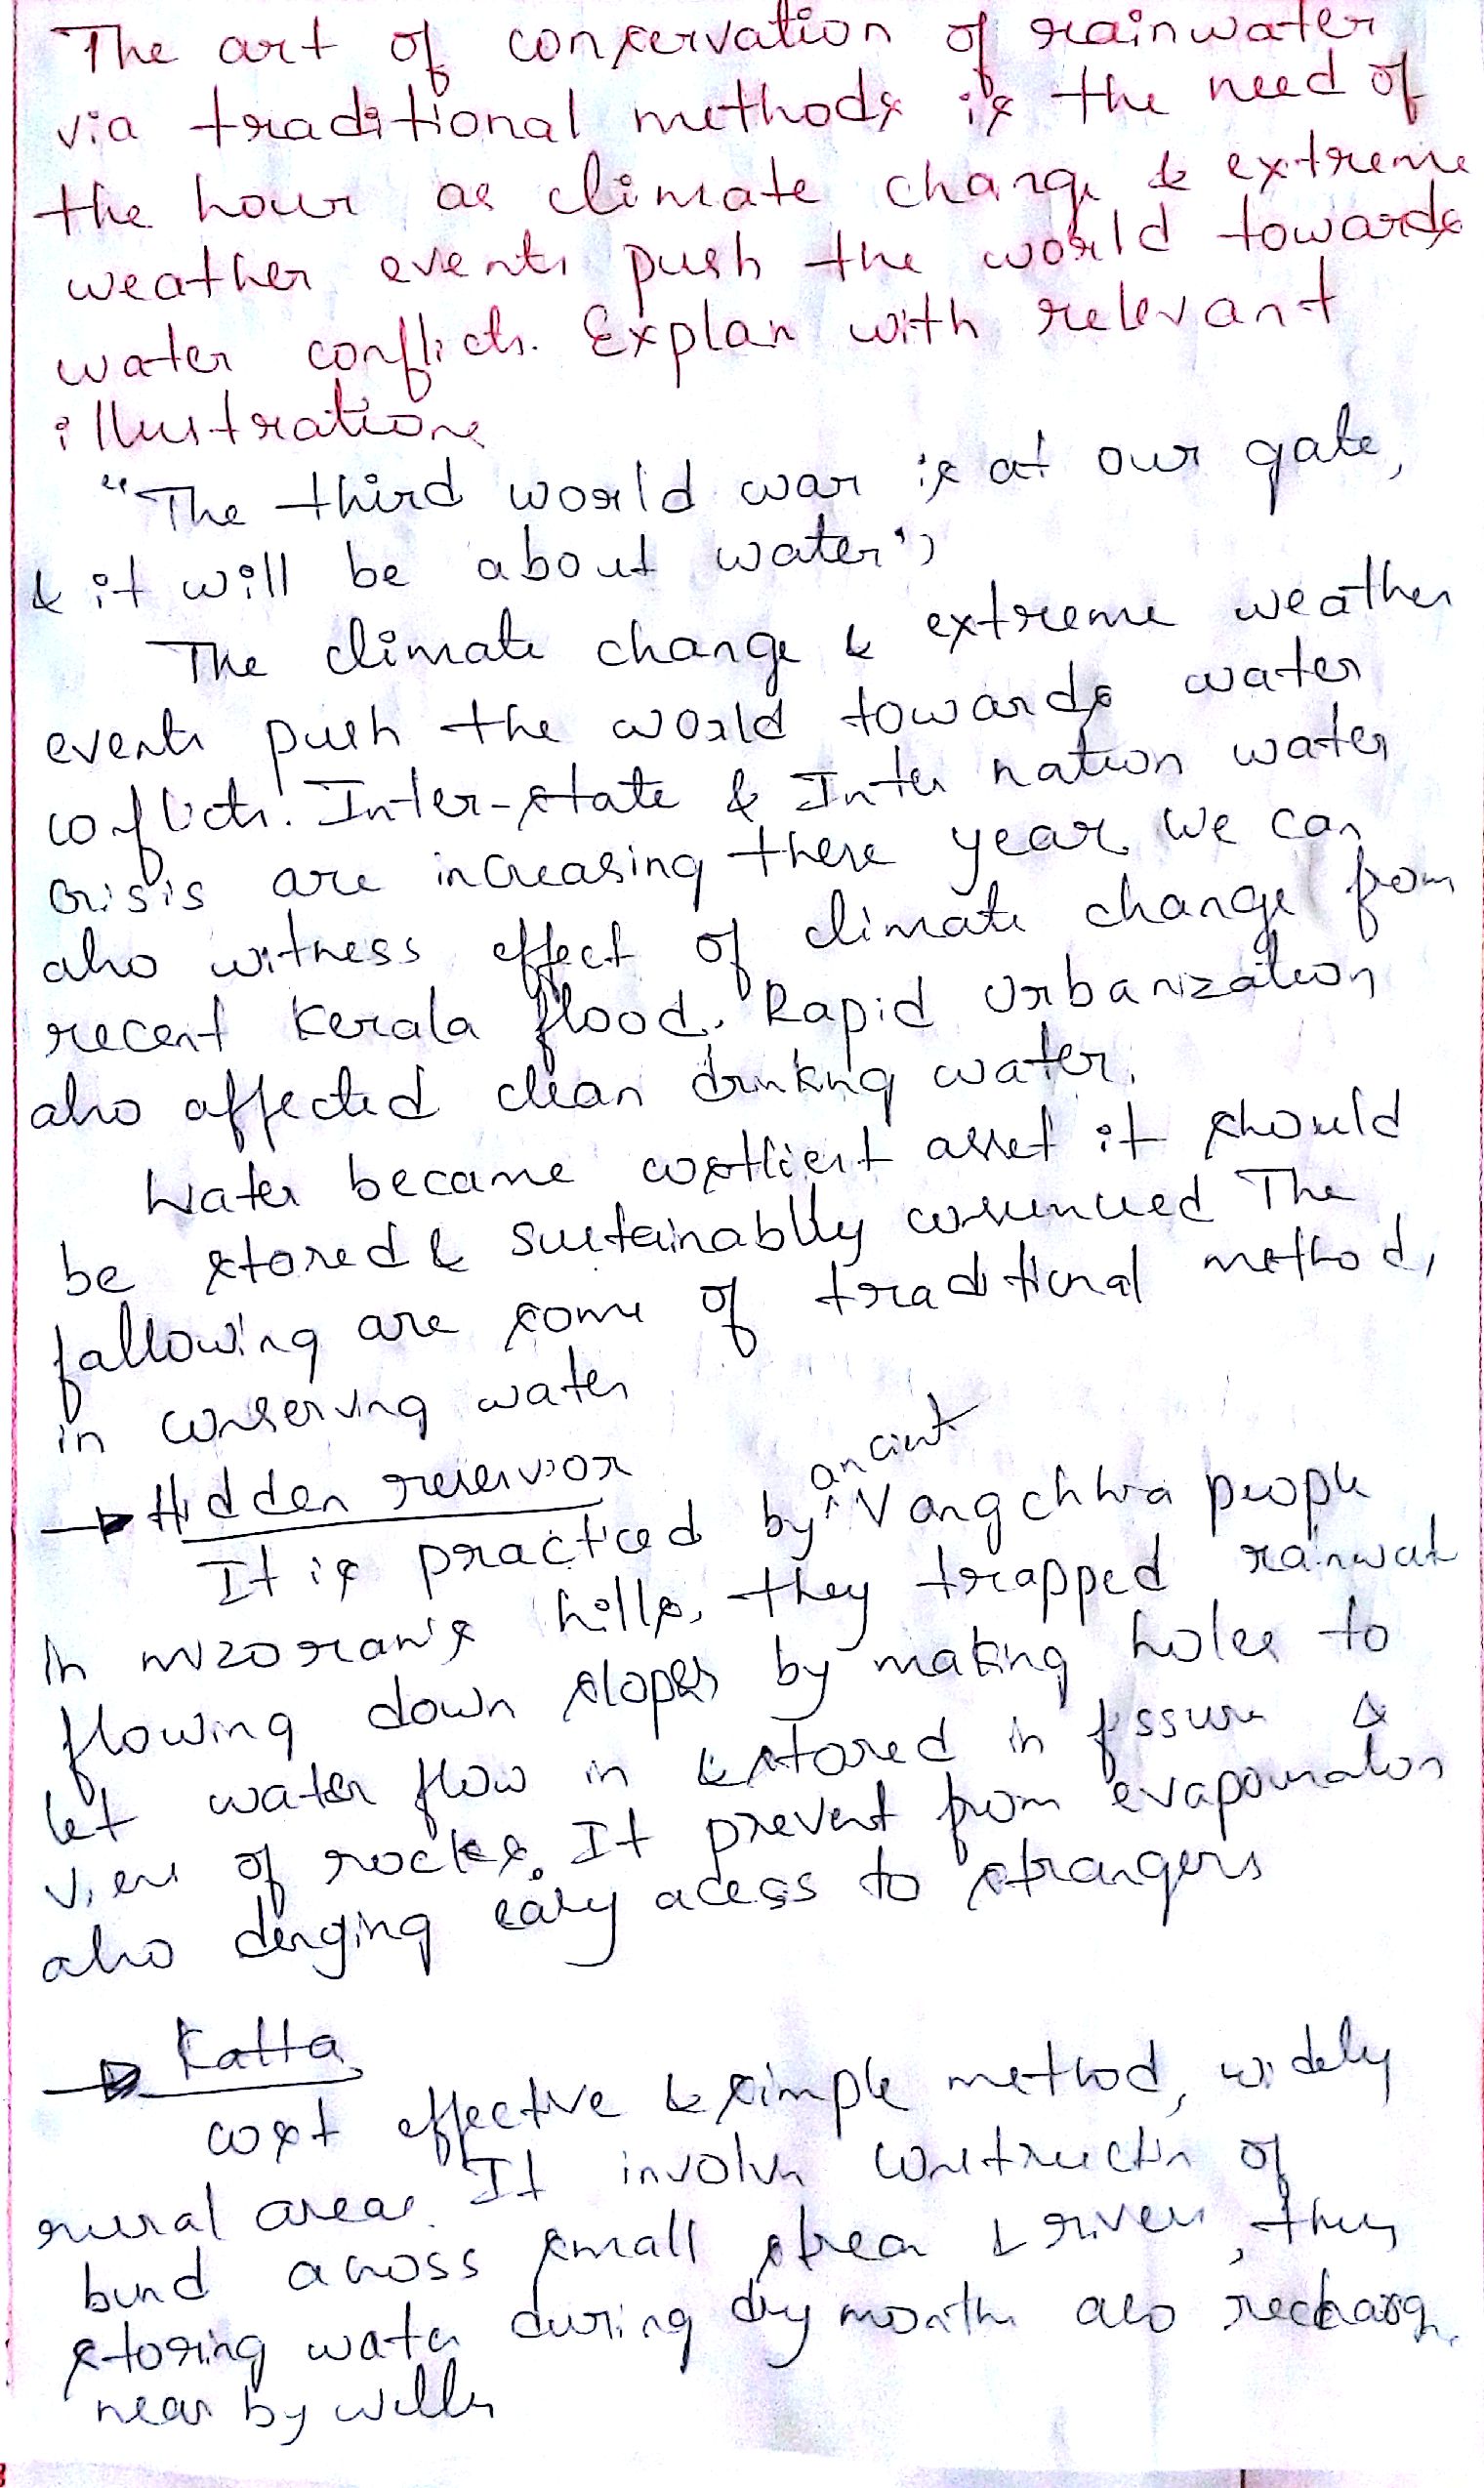 The art of conservation of rainwater
via traditional methods is the need of
the hour as climate change & extreme
weather events push the world towards
water conflicts. Explan with relevant
illustrations
"The third world war is at our gate,
& it will be about water"
The climate change & extreme weather
events push the world towards water
conflicts. Inter-state & Inter nation water
crisis are increasing these year. We can
also witness effect of climate change from
recent Kerala flood. Rapid Urbanization
also affected clean drinking water.
Water became costliest asset it should
be stored & sustainablly consumed The
following are some of traditional methods
in conserving water
→ Hidden reservior
It is practiced by ancient Vangchhia people
in mizoram's hills, they trapped rainwat
flowing down slopes by making holes to
let water flow in & stored in fissure &
viens of rocks. It prevent from evapouration
also denying easy acess to strangers
→ Katta
cost effective & simple method, widely
rural areas. It involvs constructin of
bund across small stream & rivers, they
storing water during dry months also recharge
near by wells